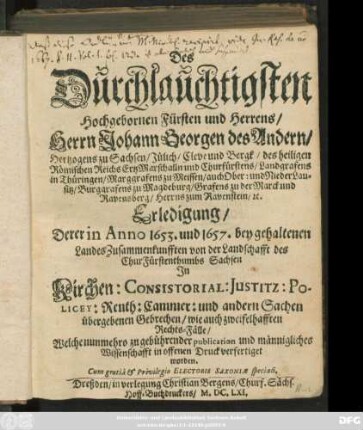 Des
Durchlauchtigsten
Hochgebornen Fürsten und Herrens/
Herrn Johann Georgen des Andern/
Hertzogens zu Sachsen/ Jülich/ Cleve und Bergk/ des heiligen
Römischen Reichs ErtzMarschalln und Churfürstens/ Landgrafens
in Thüringen/ Marggrafens zu Meissen/ auch Ober: und NiederLau-
sitz/ Burggrafens zu Magdeburg/ Grafens zu der Marck und
Ravensberg/ Herrns zum Ravenstein/ ec.
Erledigung/
Derer in Anno 1653. und 1657. bey gehaltenen
LandesZusammenkunfften von der Landschafft des
ChurFürstenthumbs Sachsen
In
Kirchen: CONSISTORIAL: JUSTITZ: PO-
LICEY: Renth: Cammer: und andern Sachen
übergebenen Gebrechen/ wie auch zweifelhafften
Rechts-Fälle/
Welche nunmehro zu gebührender publication und männigliches
Wissenschafft in offenen Druck verfertiget
worden.
Cum gratiâ & Privilegio ELECTORIS SAXONIÆ speciali,
Dreßden/ in verlegung Christian Bergens/ Churf. Sächs.
Hoff-Buchdruckers/ M. DC. LXI.